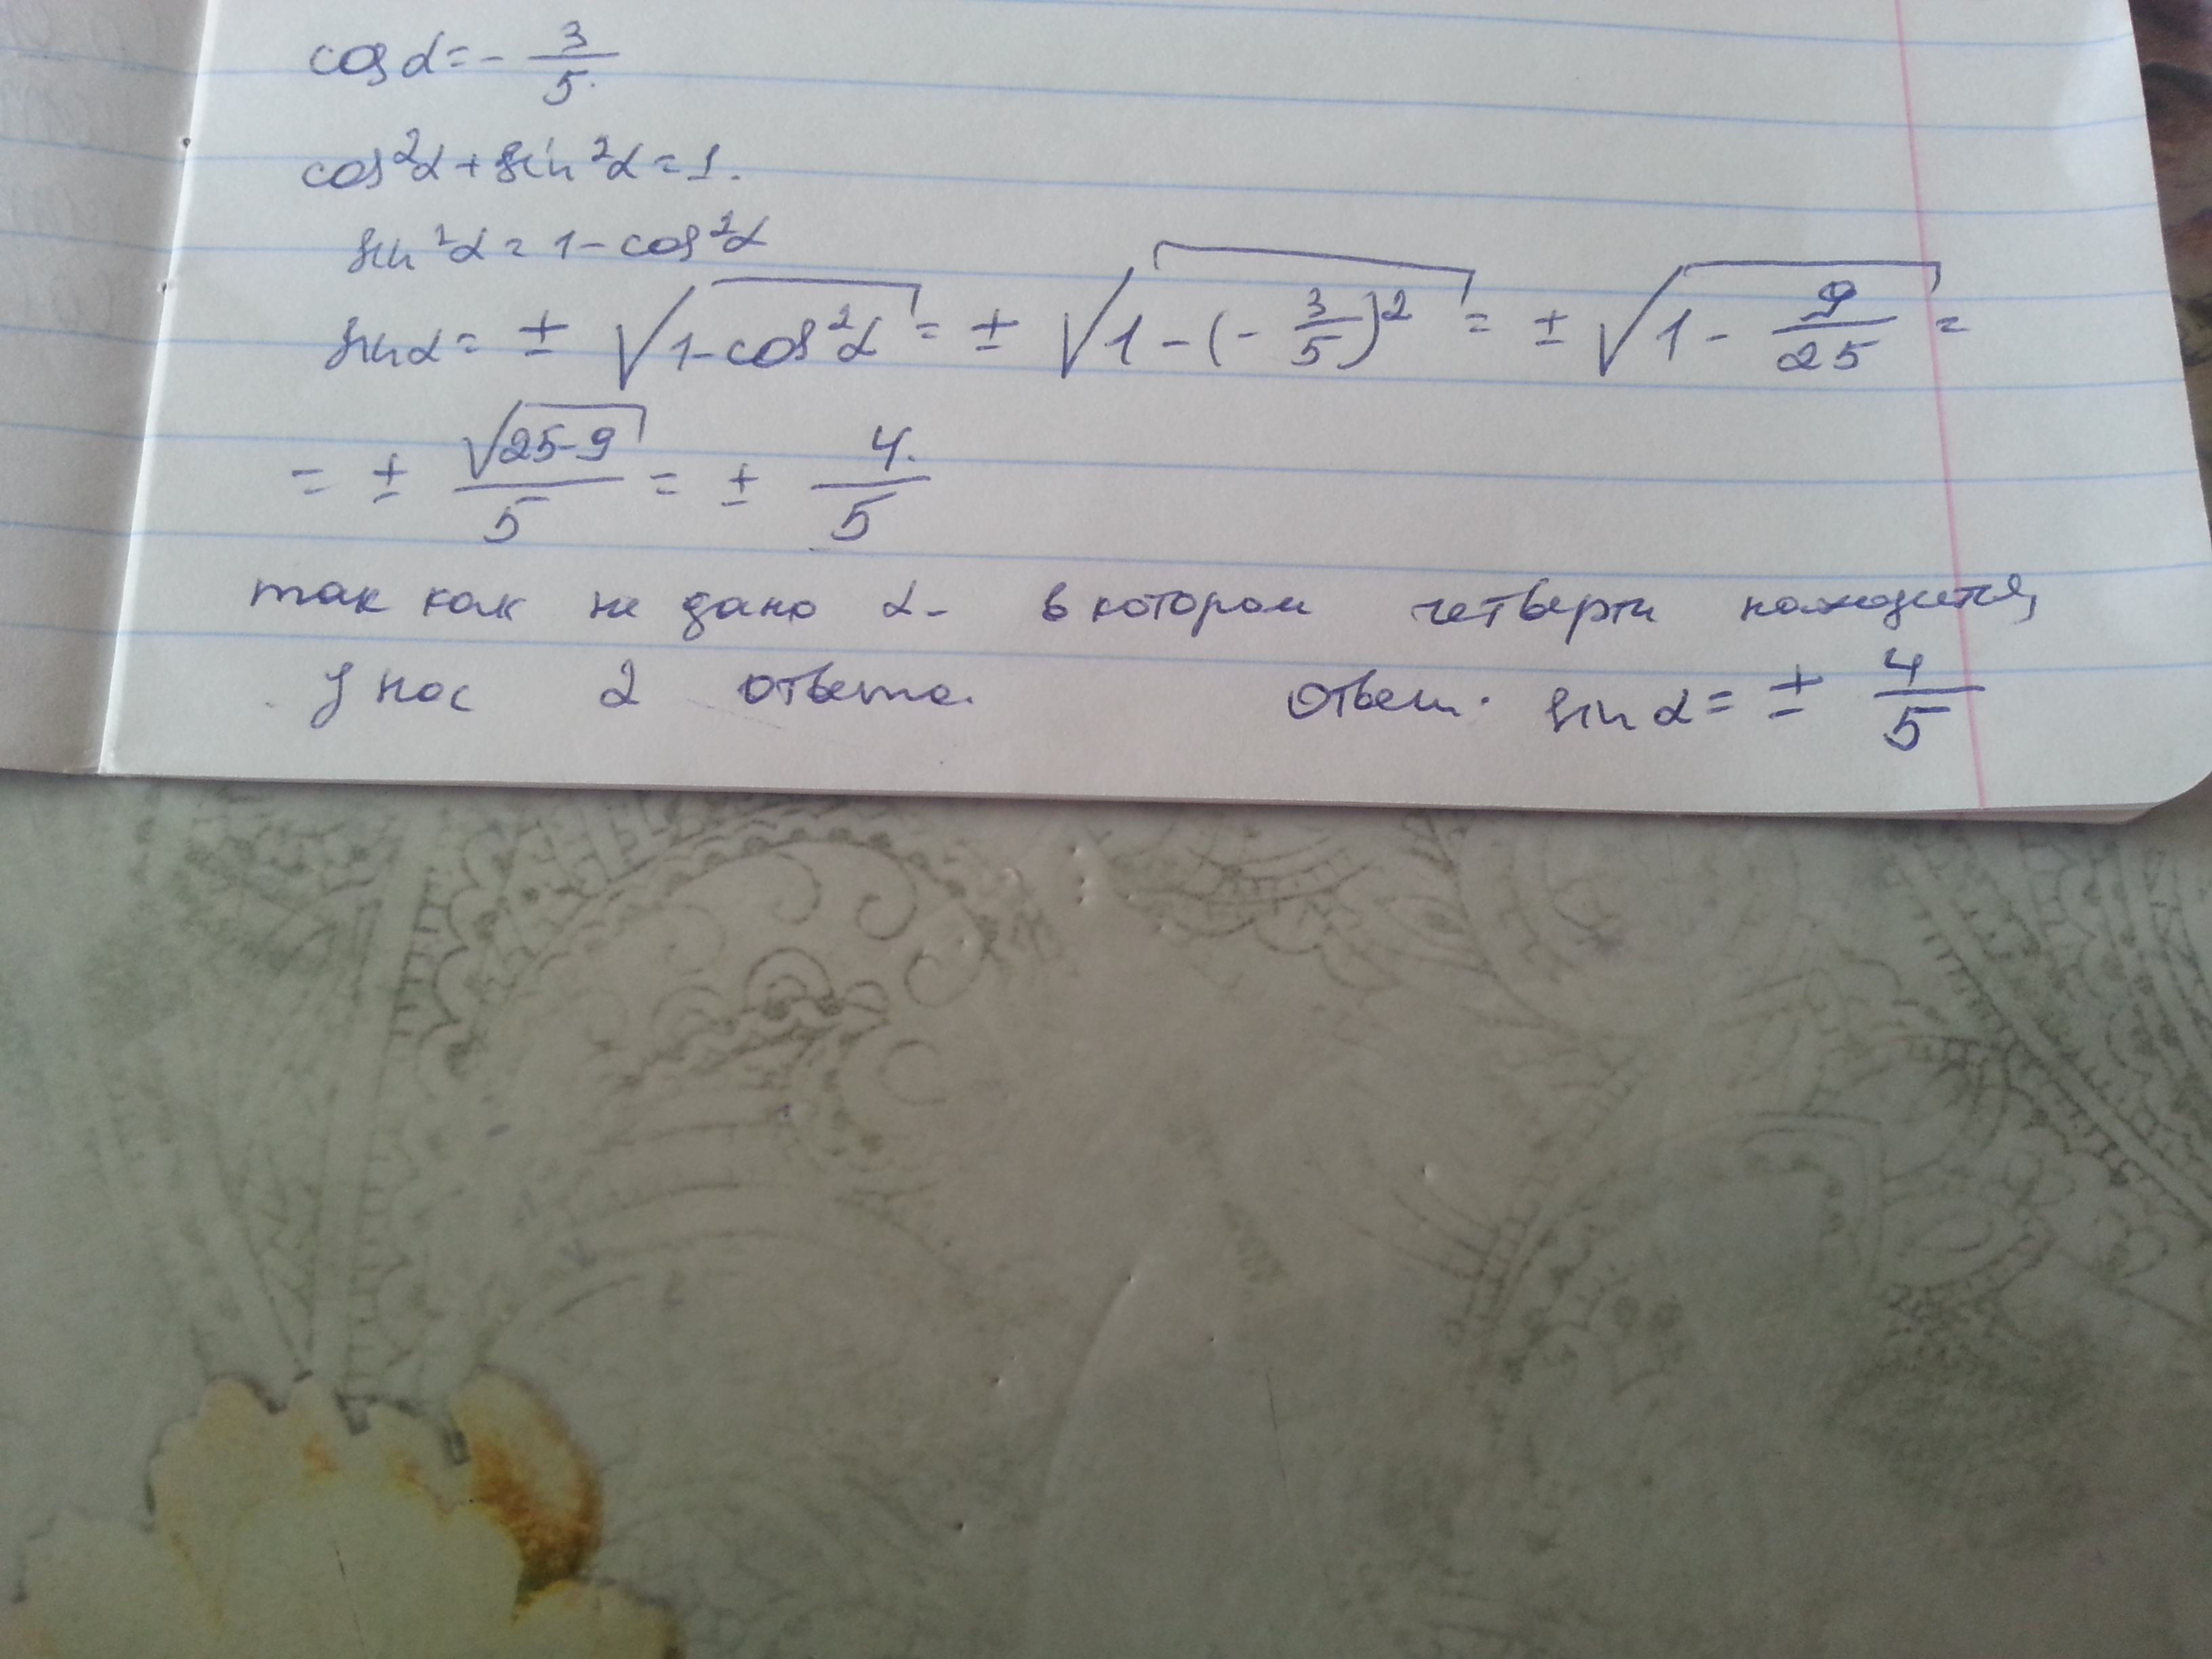 cos α = - 3/5.
cos²α + sin²α = 1.
sin²α = 1 - cos²α
sin α = ± √(1-cos²α) = ± √(1-(-3/5)²) = ± √(1 - 9/25) =
= ± √(25-9)/5 = ± 4/5
так как не дано α - в котором четверти находится,
у нас 2 ответа. Ответ. sin α = ± 4/5